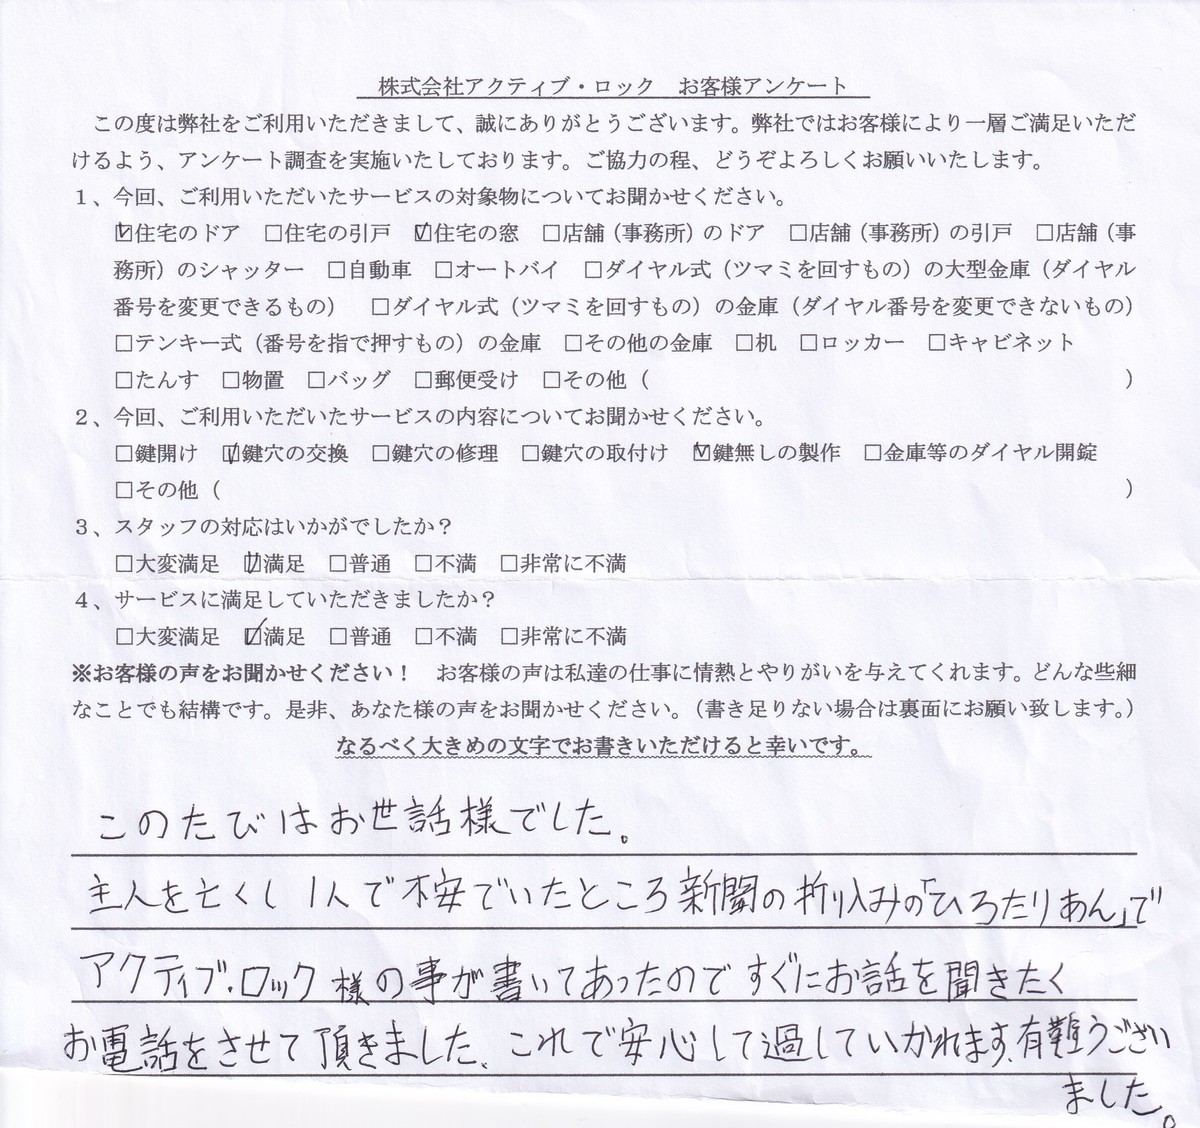 株式会社アクティブ・ロック　お客様アンケート
この度は弊社をご利用いただきまして、誠にありがとうございます。弊社ではお客様により一層ご満足いただ
けるよう、アンケート調査を実施いたしております。ご協力の程、どうぞよろしくお願いいたします。
１、今回、ご利用いただいたサービスの対象物についてお聞かせください。
☑住宅のドア　□住宅の引戸　☑住宅の窓　□店舗（事務所）のドア　□店舗（事務所）の引戸　□店舗（事
務所）のシャッター　□自動車　□オートバイ　□ダイヤル式（ツマミを回すもの）の大型金庫（ダイヤル
番号を変更できるもの）　□ダイヤル式（ツマミを回すもの）の金庫（ダイヤル番号を変更できないもの）
□テンキー式（番号を指で押すもの）の金庫　□その他の金庫　□机　□ロッカー　□キャビネット
□たんす　□物置　□バッグ　□郵便受け　□その他（　　　　　　　　　　）
２、今回、ご利用いただいたサービスの内容についてお聞かせください。
□鍵開け　☑鍵穴の交換　□鍵穴の修理　□鍵穴の取付け　☑鍵無しの製作　□金庫等のダイヤル開錠
□その他（　　　　　　　　　　）
３、スタッフの対応はいかがでしたか？
□大変満足　☑満足　□普通　□不満　□非常に不満
４、サービスに満足していただきましたか？
□大変満足　☑満足　□普通　□不満　□非常に不満
※お客様の声をお聞かせください！　お客様の声は私達の仕事に情熱とやりがいを与えてくれます。どんな些細
なことでも結構です。是非、あなた様の声をお聞かせください。（書き足りない場合は裏面にお願い致します。）
なるべく大きめの文字でお書きいただけると幸いです。
このたびはお世話様でした。
主人を亡くし1人で不安でいたところ新聞の折り込みの「ひろたりあん」で
アクティブ・ロック様の事が書いてあったのですぐにお話を聞きたく
お電話をさせて頂きました、これで安心して過していかれます、有難うござい
ました。